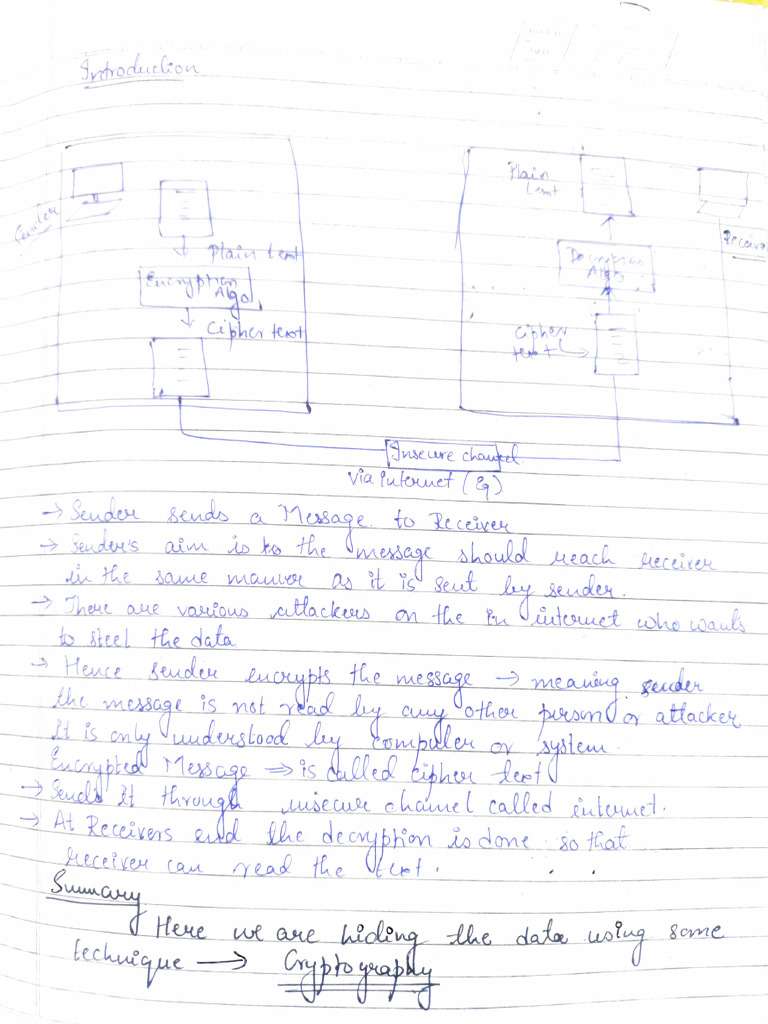 Introduction
Sender
Plain text
Encryption
Algo
Cipher text
Plain
text
Decryption
Algo
Cipher
text
Insecure channel
via internet (Eg)
→ Sender sends a Message to Receiver
→ Sender's aim is to the message should reach receiver
in the same manner as it is sent by sender.
→ There are various attackers on the in internet who wants
to steel the data
→ Hence sender encrypts the message → meaning sender
the message is not read by any other person or attacker
It is only understood by computer or system.
Encrypted Message ⇒ is called cipher text
→ Sends it through insecure channel called internet.
→ At Receivers end the decryption is done so that
receiver can read the text.
Summary
Here we are hiding the data using some
technique → Cryptography